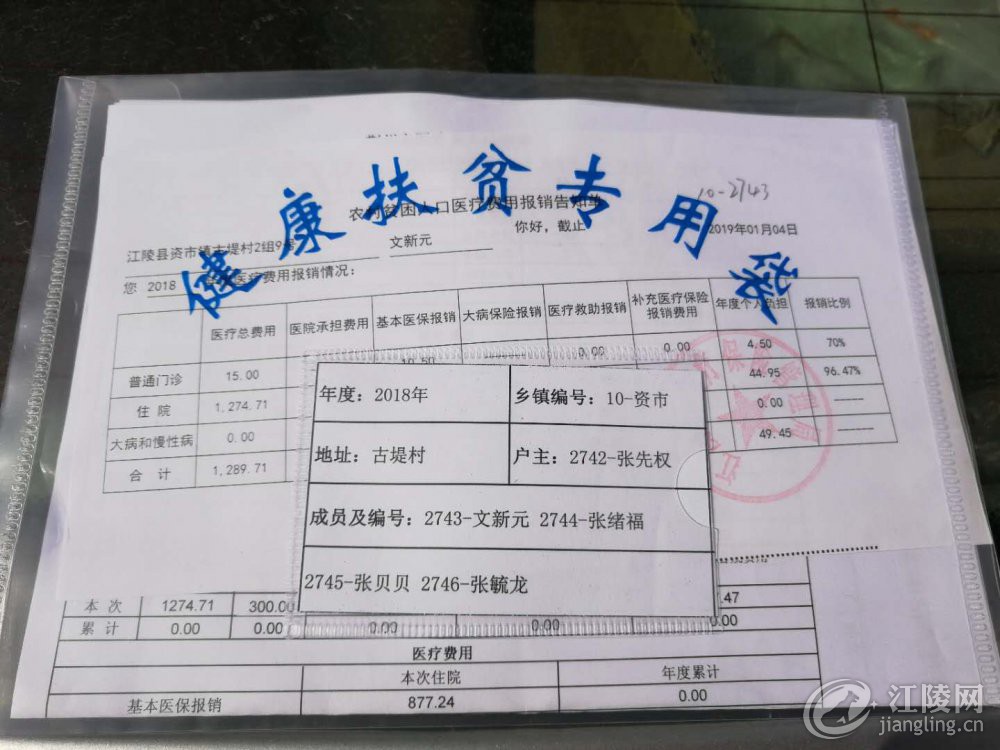 健康扶贫专用袋
10-2743
农村贫困人口医疗费用报销告知单
江陵县资市镇古堤村2组9号 文新元 你好，截止 2019年01月04日
您 2018 医疗费用报销情况：
医疗总费用 医院承担费用 基本医保报销 大病保险报销 医疗救助报销 补充医疗保险报销费用 年度个人负担 报销比例
普通门诊 15.00 10.50 0.00 0.00 4.50 70%
住院 1,274.71 44.95 96.47%
大病和慢性病 0.00 0.00 ——
合计 1,289.71 49.45 ——
年度：2018年 乡镇编号：10-资市
地址：古堤村 户主：2742-张先权
成员及编号：2743-文新元 2744-张绪福
2745-张贝贝 2746-张毓龙
本次 1274.71 300.00 .47
累计 0.00 0.00 0.00 0.00 0.00
医疗费用
本次住院 年度累计
基本医保报销 877.24 0.00
江陵网
jiangling.cn